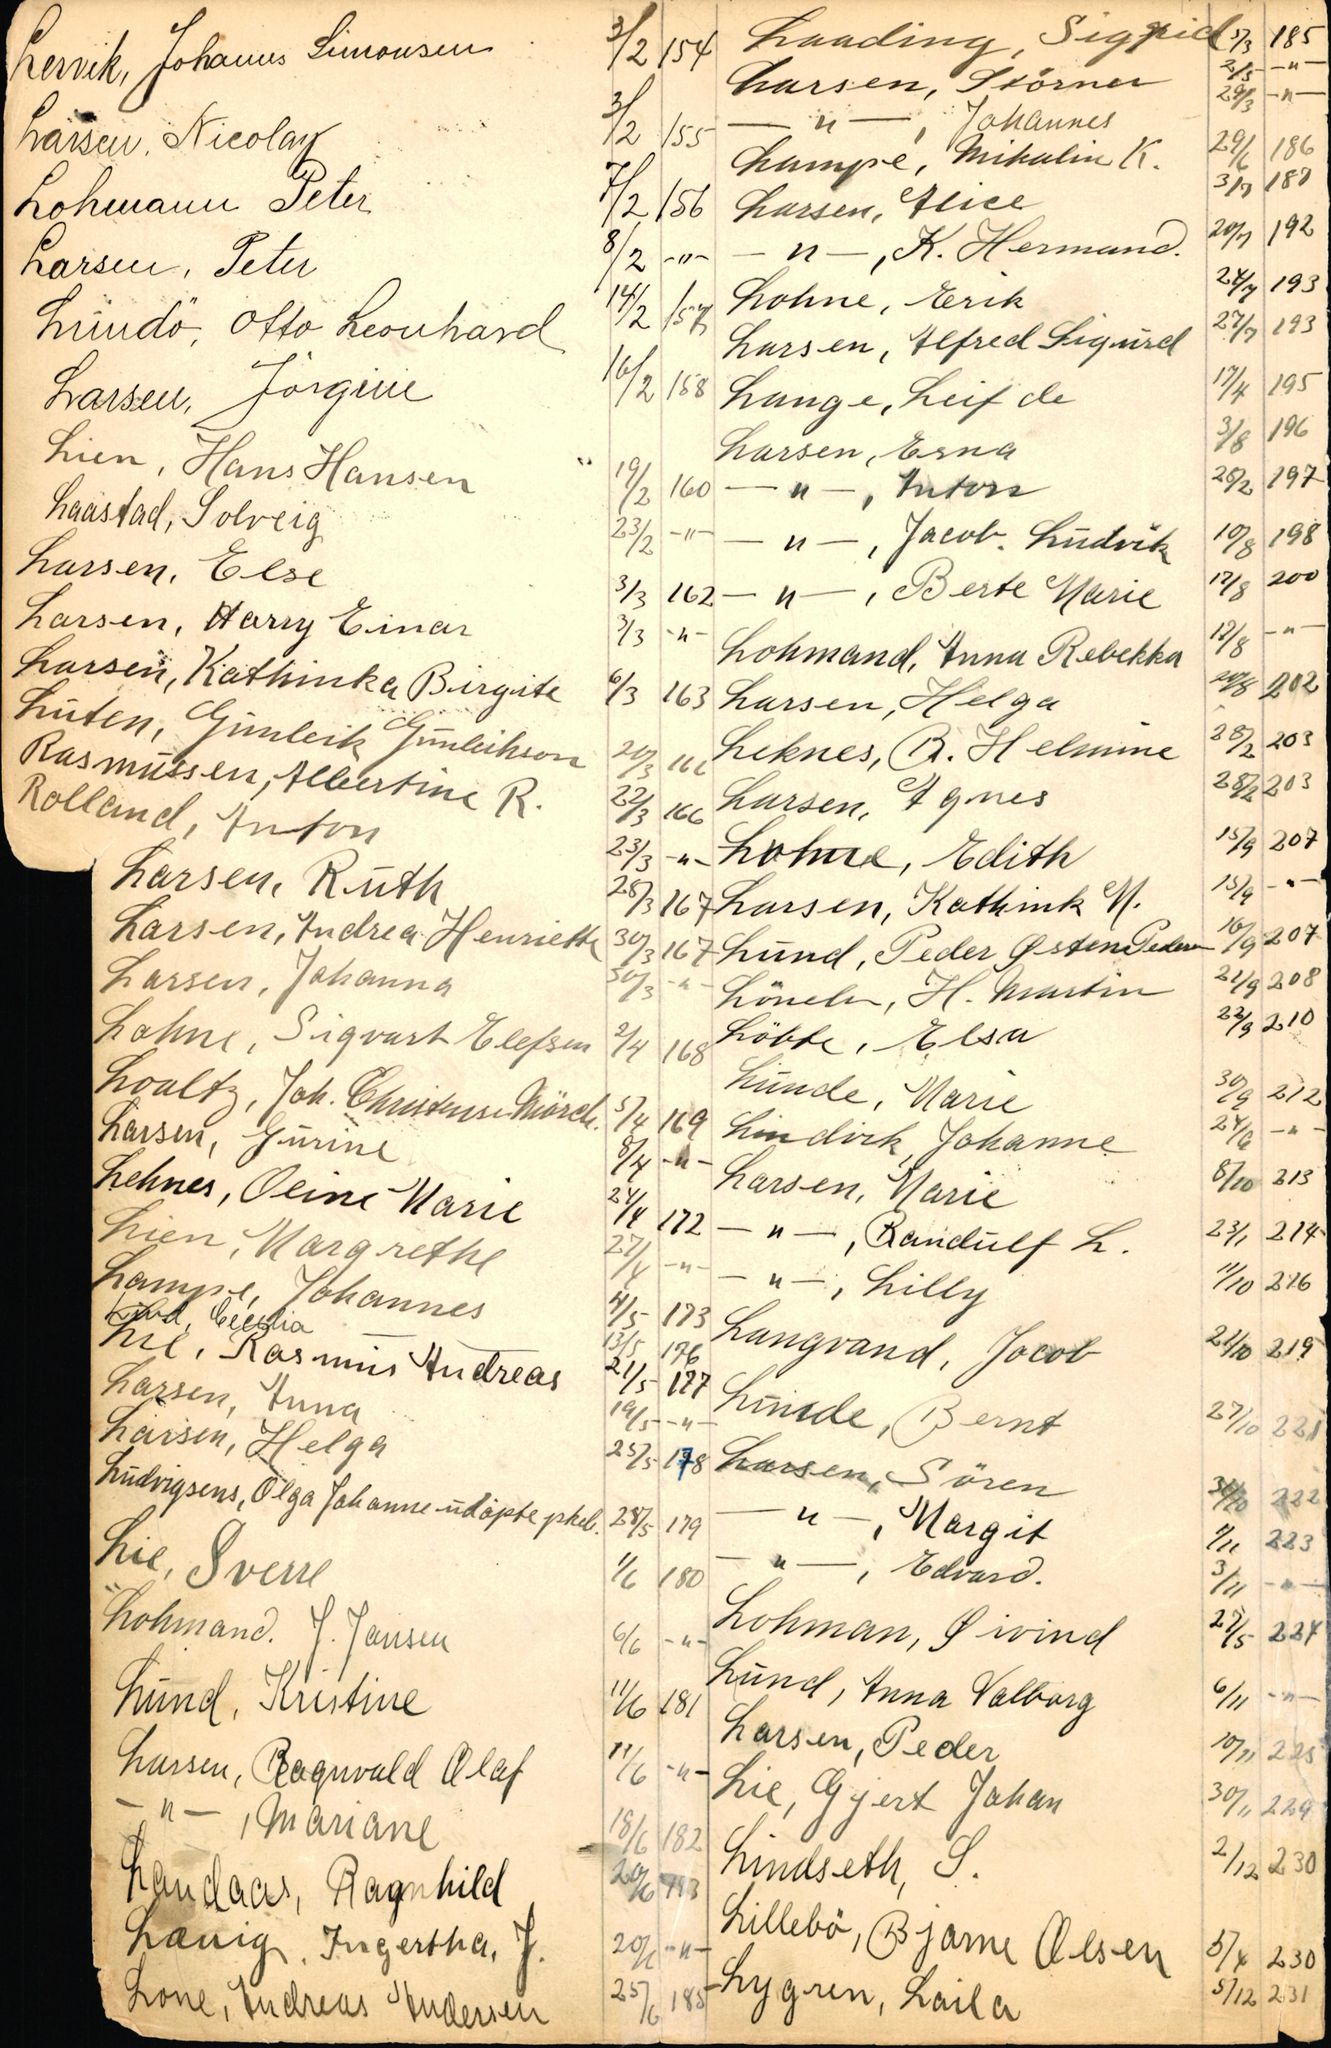 Lervik, Johannes Simonsen 3/2 154
Larsen, Nicolay 3/2 155
Lohmann Peter 7/2 156
Larsen, Peter 8/2 -"-
Lundö, Otto Leonhard 14/2 157
Larsen, Jörgine 16/2 158
Lien, Hans Hansen 19/2 160
Laastad, Solveig 23/2 -"-
Larsen, Else 3/3 162
Larsen, Harry Einar 3/3 -"-
Larsen, Kathinka Birgite 6/3 163
Luten, Gunleik Gunleikson 20/3 166
Rasmussen, Albertine R. 22/3 166
Rolland, Anton 23/3 -"-
Larsen, Ruth 28/3 167
Larsen, Andrea Henriette 30/3 167
Larsen, Johanna 30/3 -"-
Lohne, Sigvart Elefsen 2/4 168
Loaltz, Joh. Mörch. 5/4 169
Larsen, Gurine 8/4 -"-
Leknes, Oline Marie 24/4 172
Lien, Margrethe 27/4 -"-
Lampe, Johannes 4/5 173
Cecilia 13/5 176
Lie, Rasmus Andreas 21/5 177
Larsen, Anna 19/5 -"-
Larsen, Helga 25/5 178
Ludvigsens, Olga Johanne udöpte pkeb. 28/5 179
Lie, Sverre 1/6 180
Lohmand. J. Jansen 6/6 -"-
Lund, Kristine 11/6 181
Larsen, Ragnvald Olaf 11/6 -"-
-"-, Mariane 18/6 182
Landaas, Ragnhild 20/6 183
Lanig, Ingertha, J. 20/6 -"-
Lone, Andreas Andersen 25/6 185
Laading, Sigrid 1/3 185
Larsen, Störner 2/5 -"-
-"-, Johannes 29/3 -"-
Lampe, Mikalin K. 29/6 186
Larsen, Alice 3/7 187
-"-, K. Hermand. 20/7 192
Lohne, Erik 24/7 193
Larsen, Alfred Sigurd 27/7 193
Lange, Leif de 17/4 195
Larsen, Erna 3/8 196
-"-, Anton 28/2 197
-"-, Jacob. Ludvik 10/8 198
-"-, Berte Marie 12/8 200
Lohmand, Anna Rebekka 12/8 -"-
Larsen, Helga 20/8 202
Leknes, B. Helmine 28/2 203
Larsen, Agnes 28/2 203
Lohne, Edith 15/9 207
Larsen, Kathink M. 15/9 -"-
Lund, Peder Østen Peder 16/9 207
H. Martin 21/9 208
Löbbe, Elsa 22/9 210
Lunde, Marie 30/9 212
Lindvik, Johanne 24/6 -"-
Larsen, Marie 8/10 213
-"-, Randulf L. 23/1 214
-"-, Lilly 11/10 216
Langvand, Jacob 21/10 219
Lunde, Bernt 27/10 221
Larsen, Sören 31/10 222
-"-, Margit 1/11 223
-"-, Edvard. 3/11 -"-
Lohman, Øivind 25/5 224
Lund, Anna Valborg 6/11 -"-
Larsen, Peder 10/11 225
Lie, Gjert Johan 30/11 229
Lindseth, S. 2/12 230
Lillebö, Bjarne Olsen 5/4 230
Lygren, Laila 5/12 231